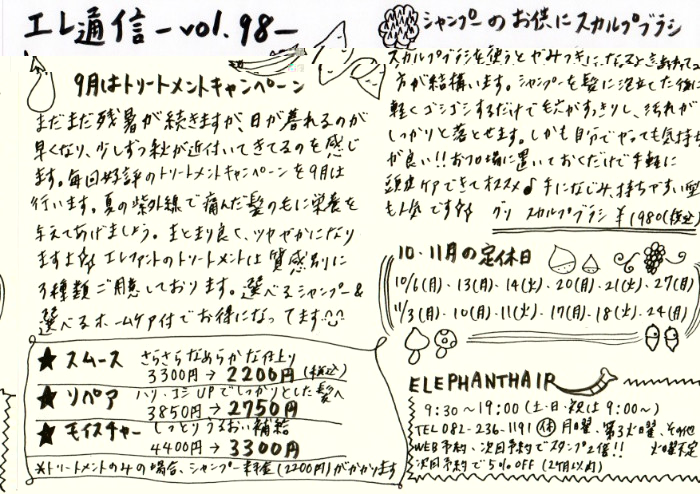 エレ通信 -vol.98-
9月はトリートメントキャンペーン
まだまだ残暑が続きますが、日が暮れるのが
早くなり、少しずつ秋が近付いてきてるのを感じ
ます。毎回好評のトリートメントキャンペーンを9月は
行います。夏の紫外線で痛んだ髪の毛に栄養を
与えてあげましょう。まとまり良く、ツヤやかになり
ます エレファントのトリートメントは質感別に
3種類ご用意しております。選べるシャンプー&
選べるホームケア付でお得になってます
★スムース さらさらなめらかな仕上り
3300円→2200円(税込)
★リペア ハリ・コシUPでしっかりとした髪へ
3850円→2750円
★モイスチャー しっとりうるおい補給
4400円→3300円
※トリートメントのみの場合、シャンプー料金(2200円)がかかります
シャンプーのお供にスカルプブラシ
スカルプブラシを使うとやみつきに
方が結構います。シャンプーを髪に泡立てた後に
軽くゴシゴシするだけで毛穴がすっきりし、汚れが
しっかりと落とせます。しかも自分でやっても気持ち
が良い!!お風呂場に置いておくだけで手軽に
頭皮ケアできてオススメ♪手になじみ、持ちやすい
も人気です
スカルプブラシ ¥1980(税込)
10・11月の定休日
10/6(月)・13(月)・14(火)・20(月)・21(火)・27(月)
11/3(月)・10(月)・11(火)・17(月)・18(火)・24(月)
ELEPHANTHAIR
9:30〜19:00(土・日・祝は9:00〜)
TEL 082-236-1191 休 月曜、第3火曜、その他
WEB予約、次回予約でスタンプ2倍!! 火曜不定
次回予約で5%OFF(2ヶ月以内)